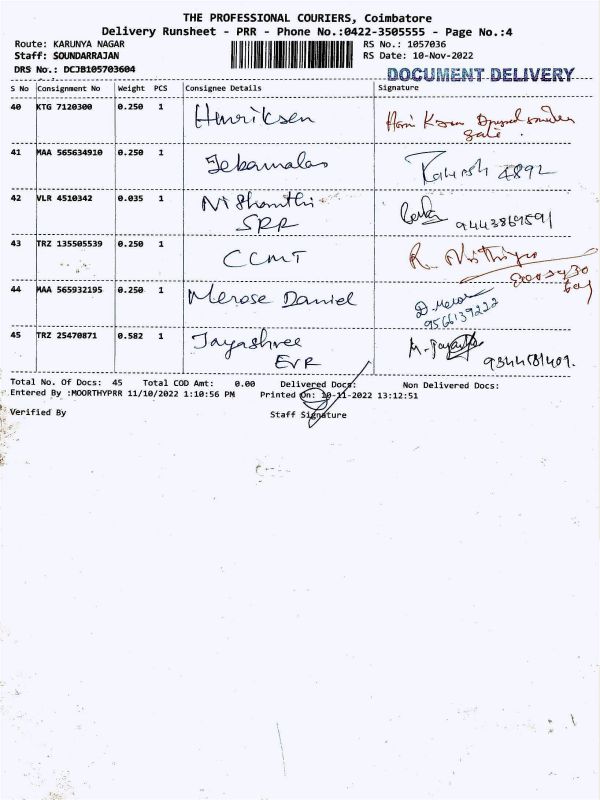 THE PROFESSIONAL COURIERS, Coimbatore
Delivery Runsheet - PRR - Phone No.:0422-3505555 - Page No.:4
Route: KARUNYA NAGAR RS No.: 1057036
Staff: SOUNDARRAJAN RS Date: 10-Nov-2022
DRS No.: DCJB105703604 DOCUMENT DELIVERY
S No Consignment No Weight PCS Consignee Details Signature
40 KTG 7120300 0.250 1 Henriksen
41 MAA 565634910 0.250 1 Jebamalas 4892
42 VLR 4510342 0.035 1 Nishanthi
SRR 9443869591
43 TRZ 135505539 0.250 1 CCMT R.
44 MAA 565932195 0.250 1 Merose Daniel D. Merose
9566139222
45 TRZ 25470871 0.582 1 Jayashree M.
EVR
Total No. Of Docs: 45 Total COD Amt: 0.00 Delivered Docs: Non Delivered Docs:
Entered By :MOORTHYPRR 11/10/2022 1:10:56 PM Printed On: 10-11-2022 13:12:51
Verified By Staff Signature